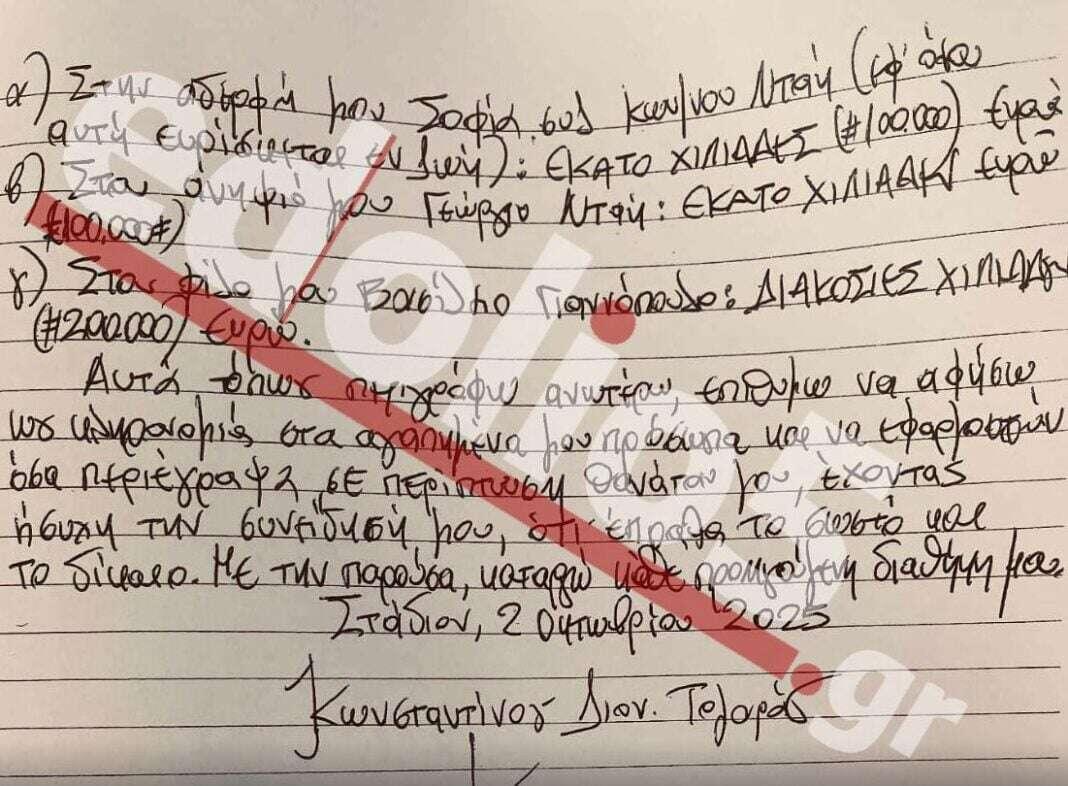 α) Στην αδερφή μου Σοφία συζ. Κων/νου Νταή (εφ' όσον
αυτή ευρίσκεται εν ζωή): ΕΚΑΤΟ ΧΙΛΙΑΔΕΣ (#100.000) Ευρώ
β) Στον ανηψιό μου Γεώργιο Νταή: ΕΚΑΤΟ ΧΙΛΙΑΔΕΣ Ευρώ
#100.000#)
γ) Στον φίλο μου Βασίλειο Γιαννόπουλο: ΔΙΑΚΟΣΙΕΣ ΧΙΛΙΑΔΕΣ
(#200.000) Ευρώ.
Αυτά όπως περιγράφω ανωτέρω, επιθυμώ να αφήσω
ως κληρονομιάς στα αγαπημένα μου πρόσωπα και να εφαρμοστούν
όσα περιέγραψα σε περίπτωση θανάτου μου, έχοντας
ήσυχη την συνείδησή μου, ότι έπραξα το σωστό και
το δίκαιο. Με την παρούσα, καταργώ κάθε προηγούμενη διαθήκη μου.
Στάδιον, 2 Οκτωβρίου 2025
Κωνσταντίνος Διον.
edolio5.gr